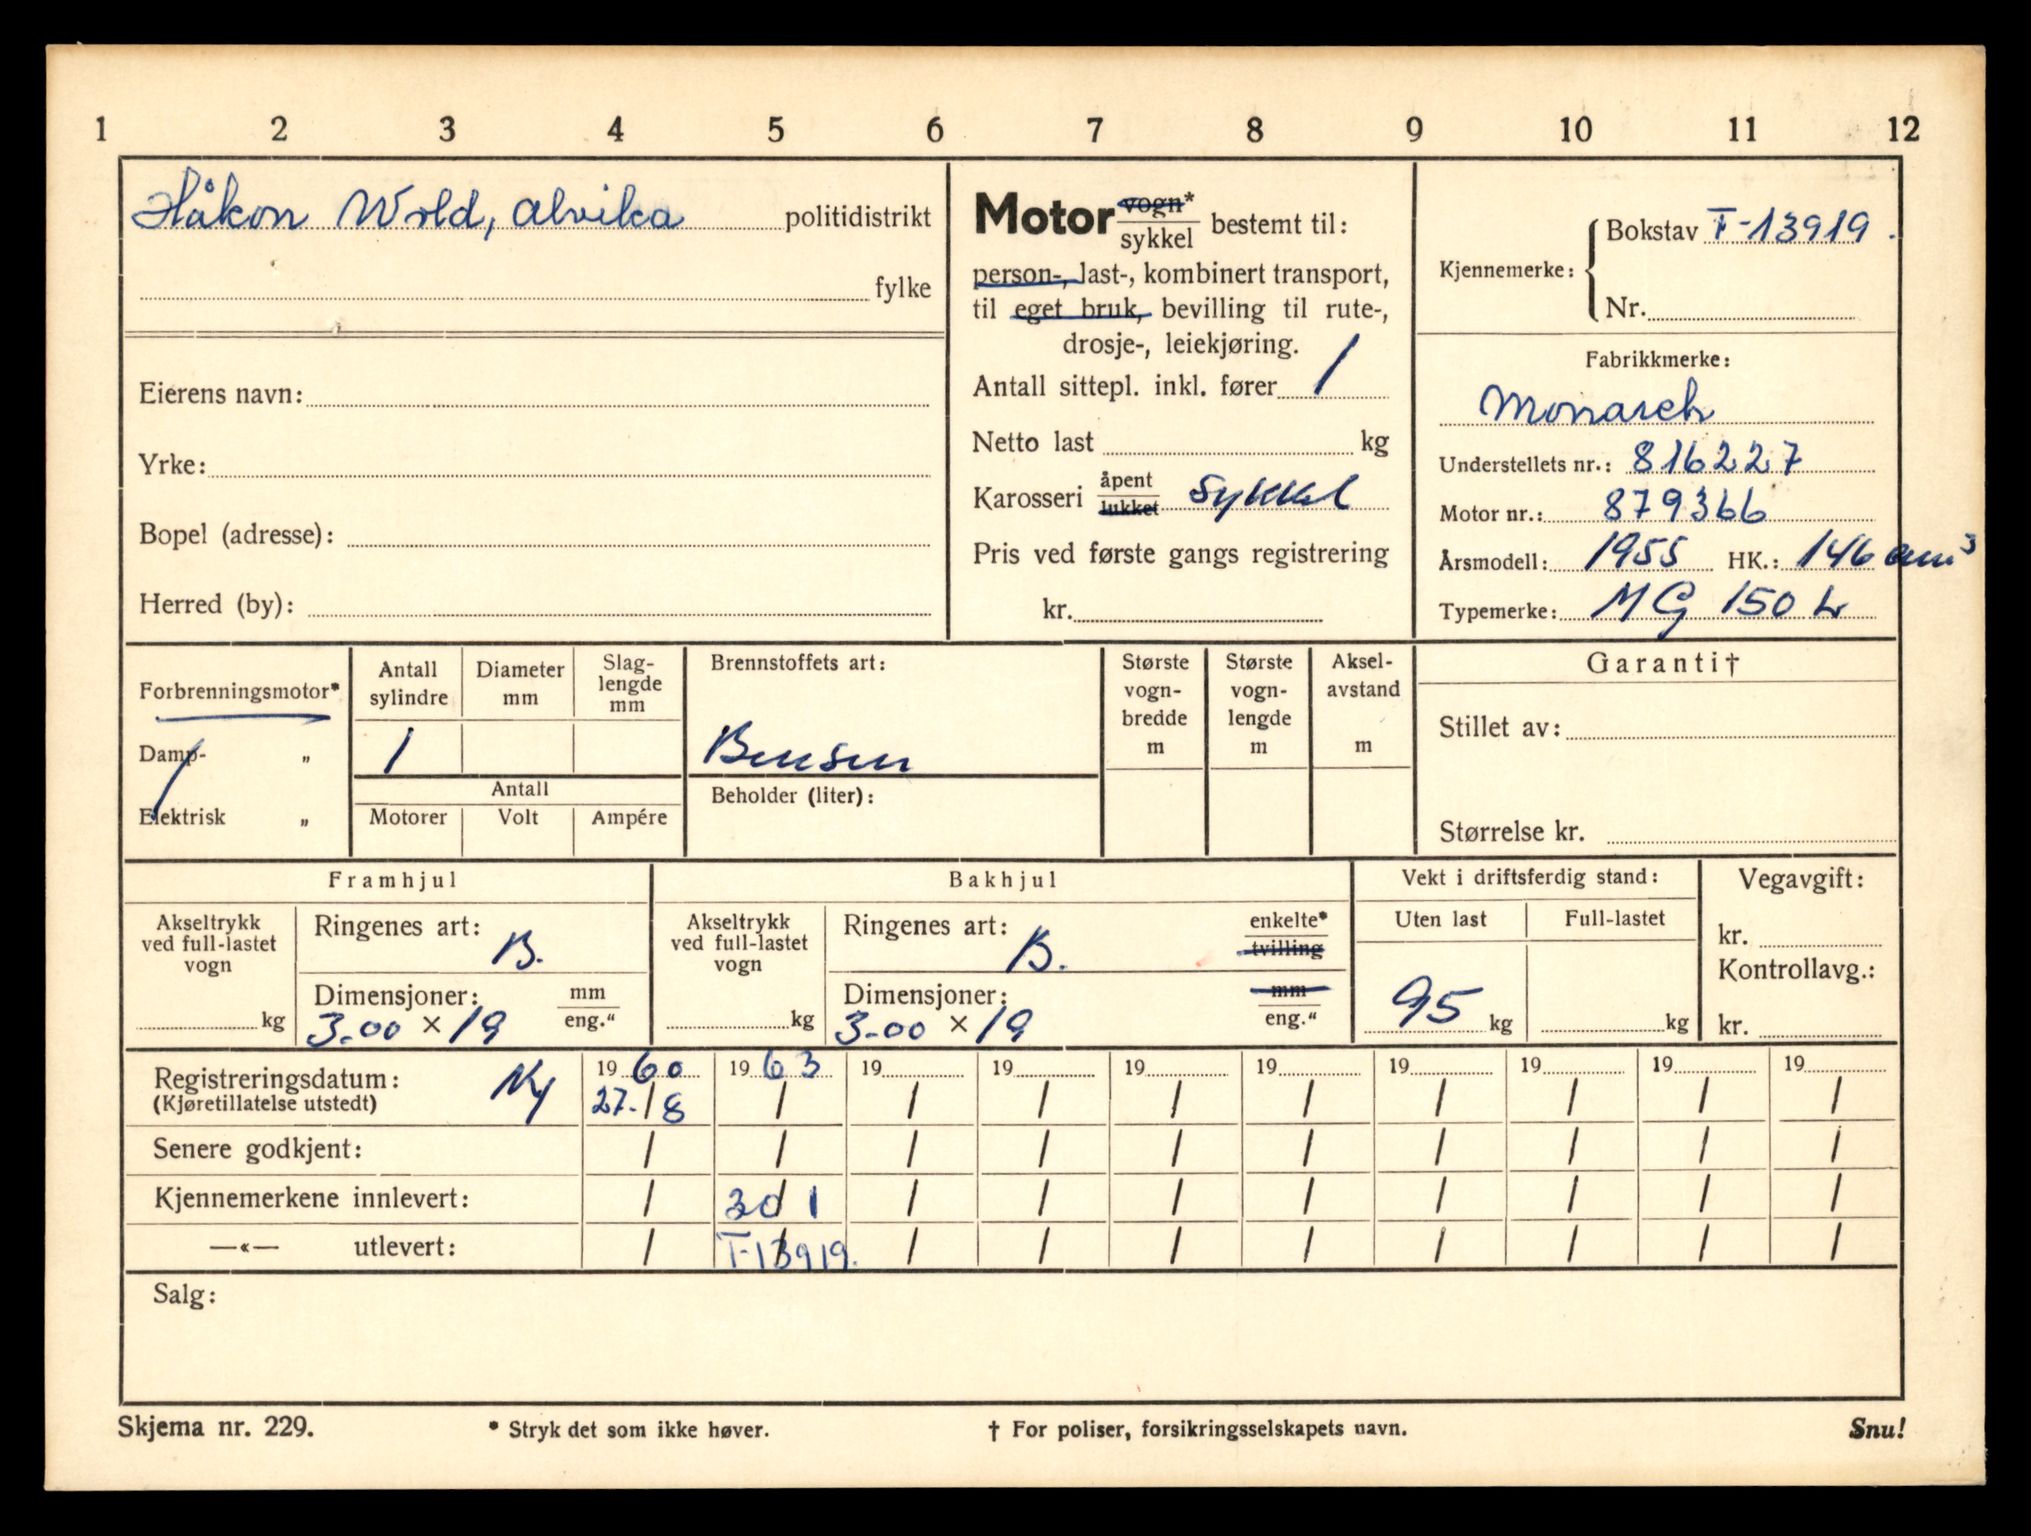 1 2 3 4 5 6 7 8 9 10 11 12
Håkon Wold, Alvika politidistrikt
fylke
Eierens navn:
Yrke:
Bopel (adresse):
Herred (by):
Motor vogn* sykkel bestemt til:
person-, last-, kombinert transport,
til eget bruk, bevilling til rute-,
drosje-, leiekjøring.
Antall sittepl. inkl. fører 1
Netto last kg
Karosseri åpent lukket sykkel
Pris ved første gangs registrering
kr.
Kjennemerke: Bokstav T-13919.
Nr.
Fabrikkmerke:
Monarch
Understellets nr.: 816227
Motor nr.: 879366
Årsmodell: 1955 HK.: 146 cm³
Typemerke: MG 150 L
Forbrenningsmotor*
Damp- „
Elektrisk „
Antall sylindre Diameter mm Slag-lengde mm
1
Antall
Motorer Volt Ampére
Brennstoffets art:
Bensen
Beholder (liter):
Største vogn-bredde m
Største vogn-lengde m
Aksel-avstand m
Garanti†
Stillet av:
Størrelse kr.
Framhjul
Akseltrykk ved full-lastet vogn
kg
Ringenes art: B.
Dimensjoner: mm eng."
3.00 × 19
Bakhjul
Akseltrykk ved full-lastet vogn
kg
Ringenes art: B. enkelte* tvilling
Dimensjoner: mm eng."
3.00 × 19
Vekt i driftsferdig stand:
Uten last Full-lastet
95 kg kg
Vegavgift:
kr.
Kontrollavg.:
kr.
Registreringsdatum: Ny 1960 1963 19 19 19 19 19 19 19 19
(Kjøretillatelse utstedt) 27./8 / / / / / / / / /
Senere godkjent: / / / / / / / / / /
Kjennemerkene innlevert: / 30/1 / / / / / / / /
—«— utlevert: / T-13919. / / / / / / / /
Salg:
Skjema nr. 229. * Stryk det som ikke høver. † For poliser, forsikringsselskapets navn. Snu!